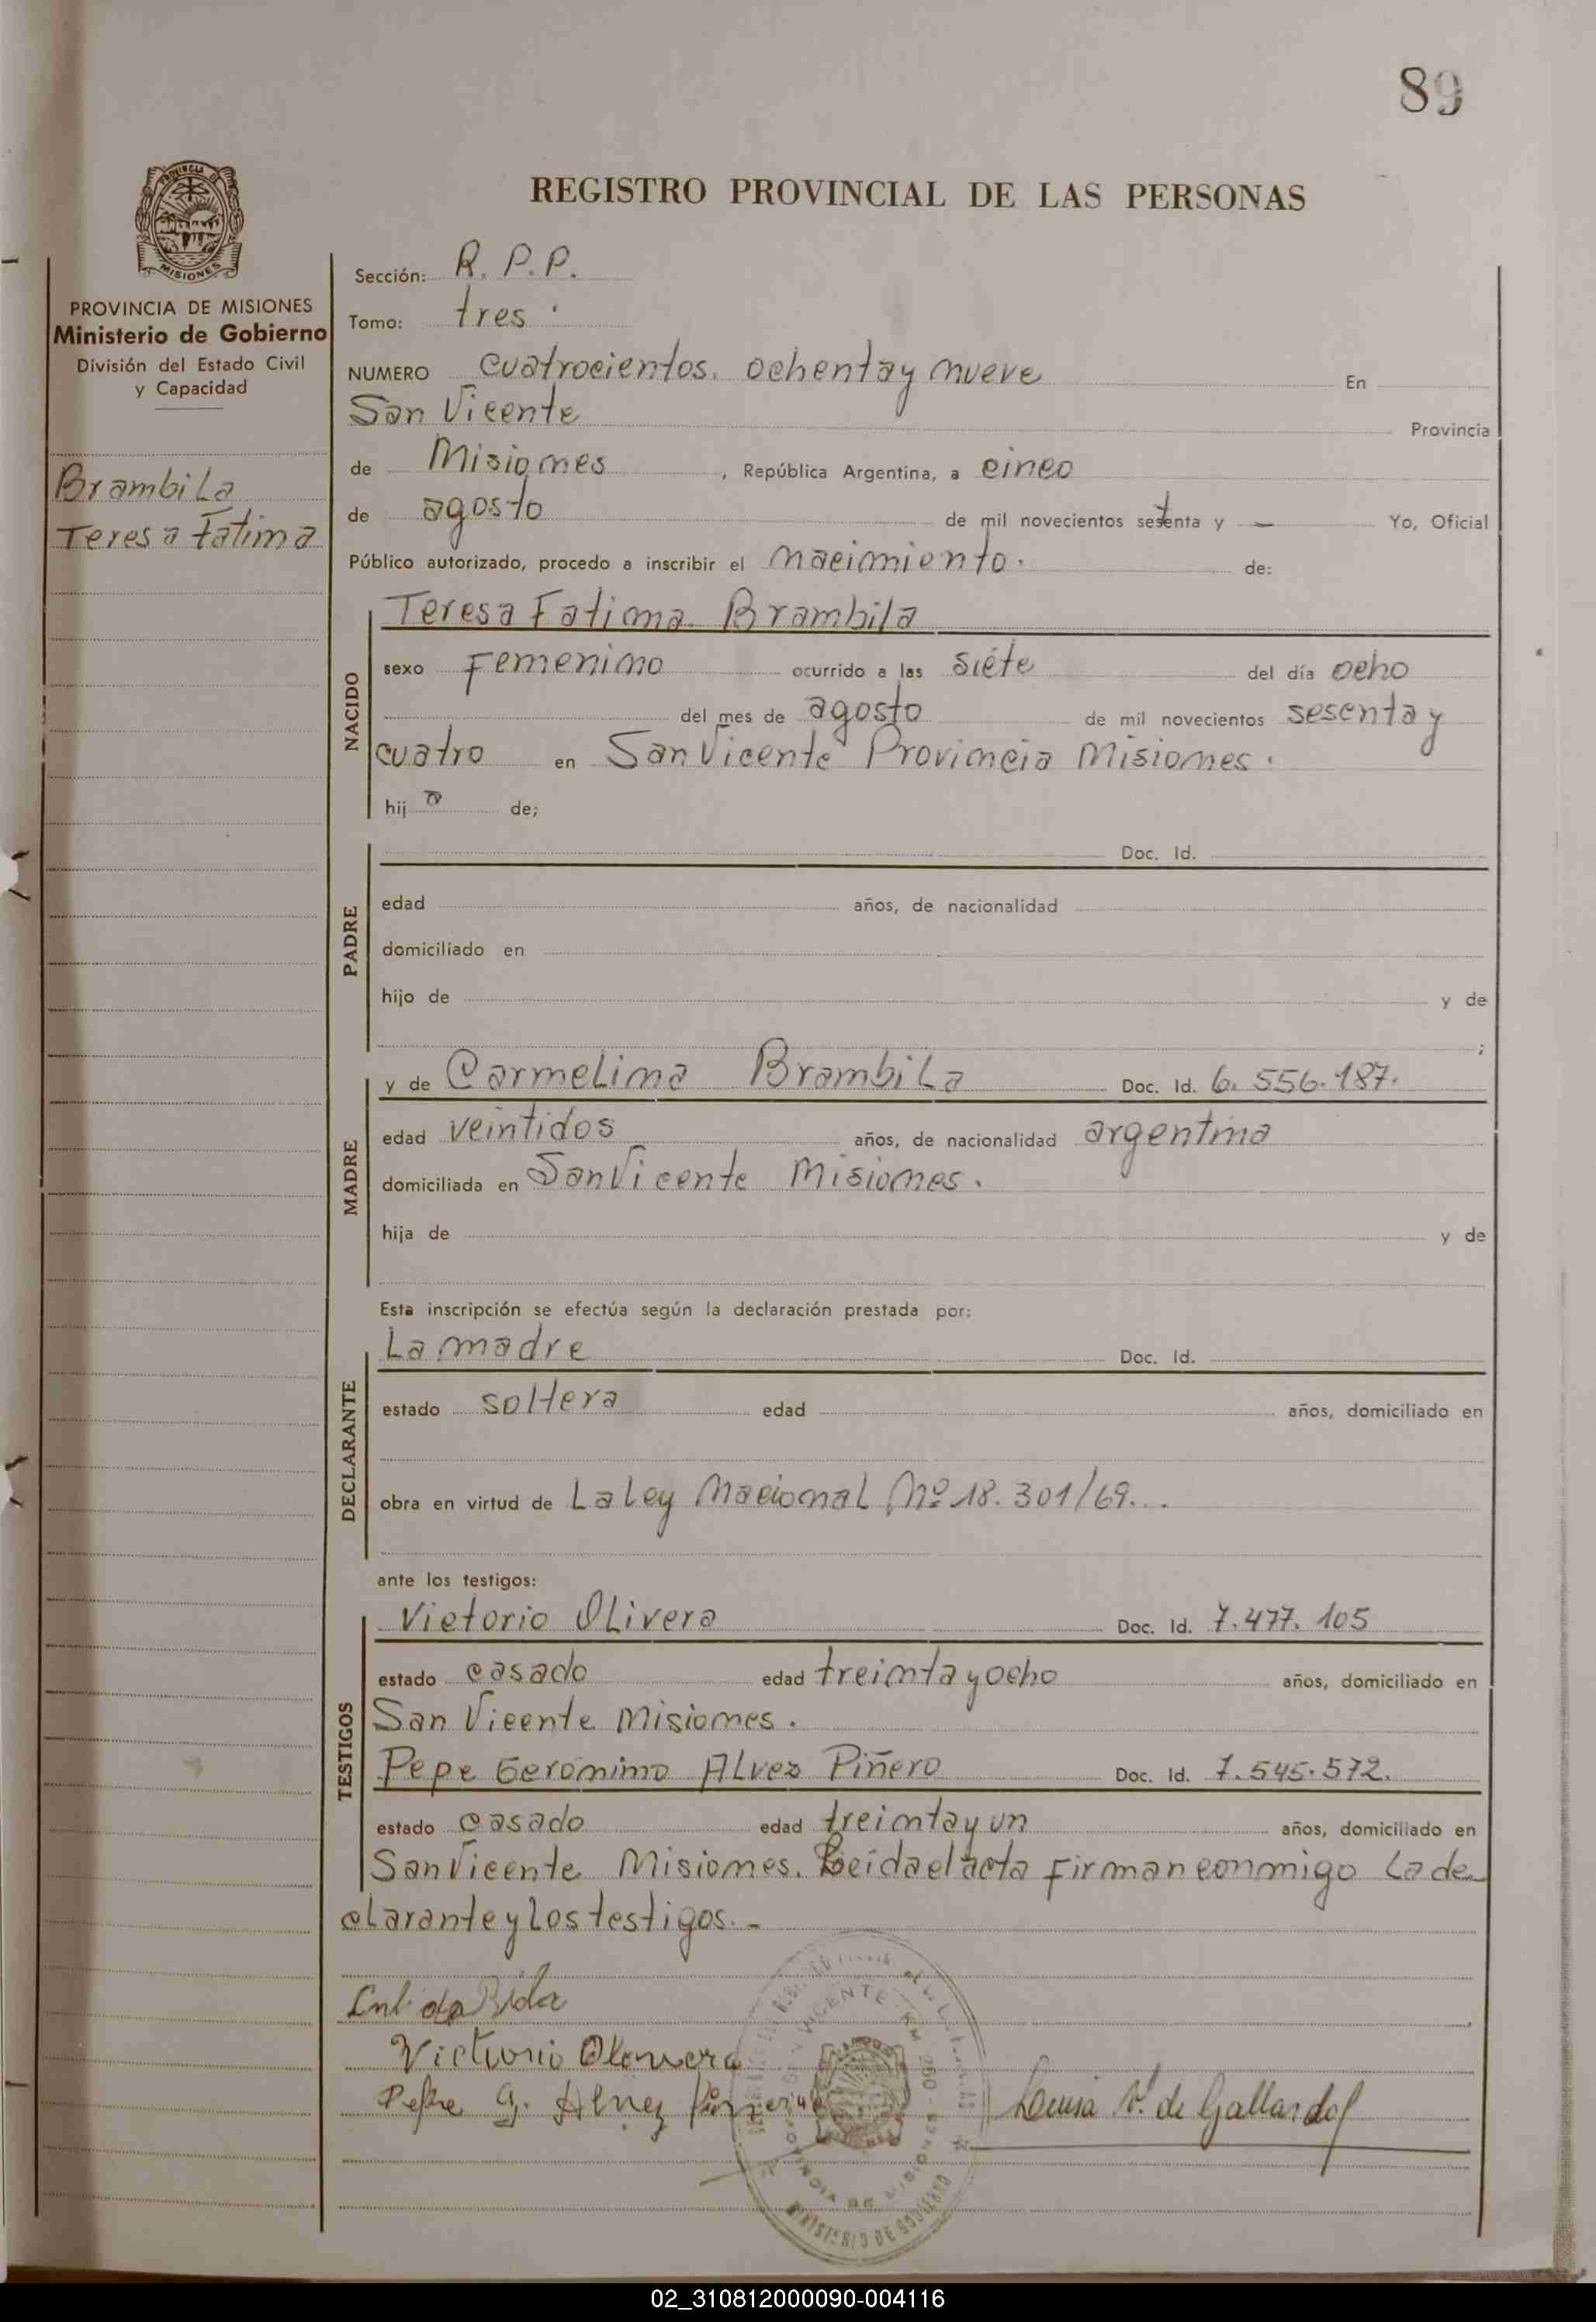 89
REGISTRO PROVINCIAL DE LAS PERSONAS
PROVINCIA DE MISIONES
Ministerio de Gobierno
División del Estado Civil
y Capacidad
Brambila
Teresa Fatima
Sección: R. P. P.
Tomo: tres
NUMERO cuatrocientos ochenta y nueve En
San Vicente Provincia
de Misiones, República Argentina, a cinco
de agosto de mil novecientos setenta y — Yo, Oficial
Público autorizado, procedo a inscribir el nacimiento. de:
NACIDO
Teresa Fatima Brambila
sexo Femenino ocurrido a las siete del día ocho
del mes de agosto de mil novecientos sesenta y
cuatro en San Vicente Provincia Misiones.
hija de;
PADRE
Doc. Id.
edad años, de nacionalidad
domiciliado en
hijo de y de
;
MADRE
y de Carmelina Brambila Doc. Id. 6.556.187.
edad veintidos años, de nacionalidad argentina
domiciliada en San Vicente Misiones.
hija de y de
Esta inscripción se efectúa según la declaración prestada por:
DECLARANTE
La madre Doc. Id.
estado soltera edad años, domiciliado en
obra en virtud de La Ley Nacional Nº 18.301/69...
ante los testigos:
TESTIGOS
Victorio Olivera Doc. Id. 7.477.105
estado casado edad treinta y ocho años, domiciliado en
San Vicente Misiones.
Pepe Gerónimo Alvez Piñero Doc. Id. 7.545.572.
estado casado edad treinta y un años, domiciliado en
San Vicente Misiones. Leída el acta firman conmigo la de
clarante y los testigos.-
Victorio
Luisa V. de Gallardo
MINISTERIO DE GOBIERNO
PROVINCIA DE MISIONES
02_310812000090-004116